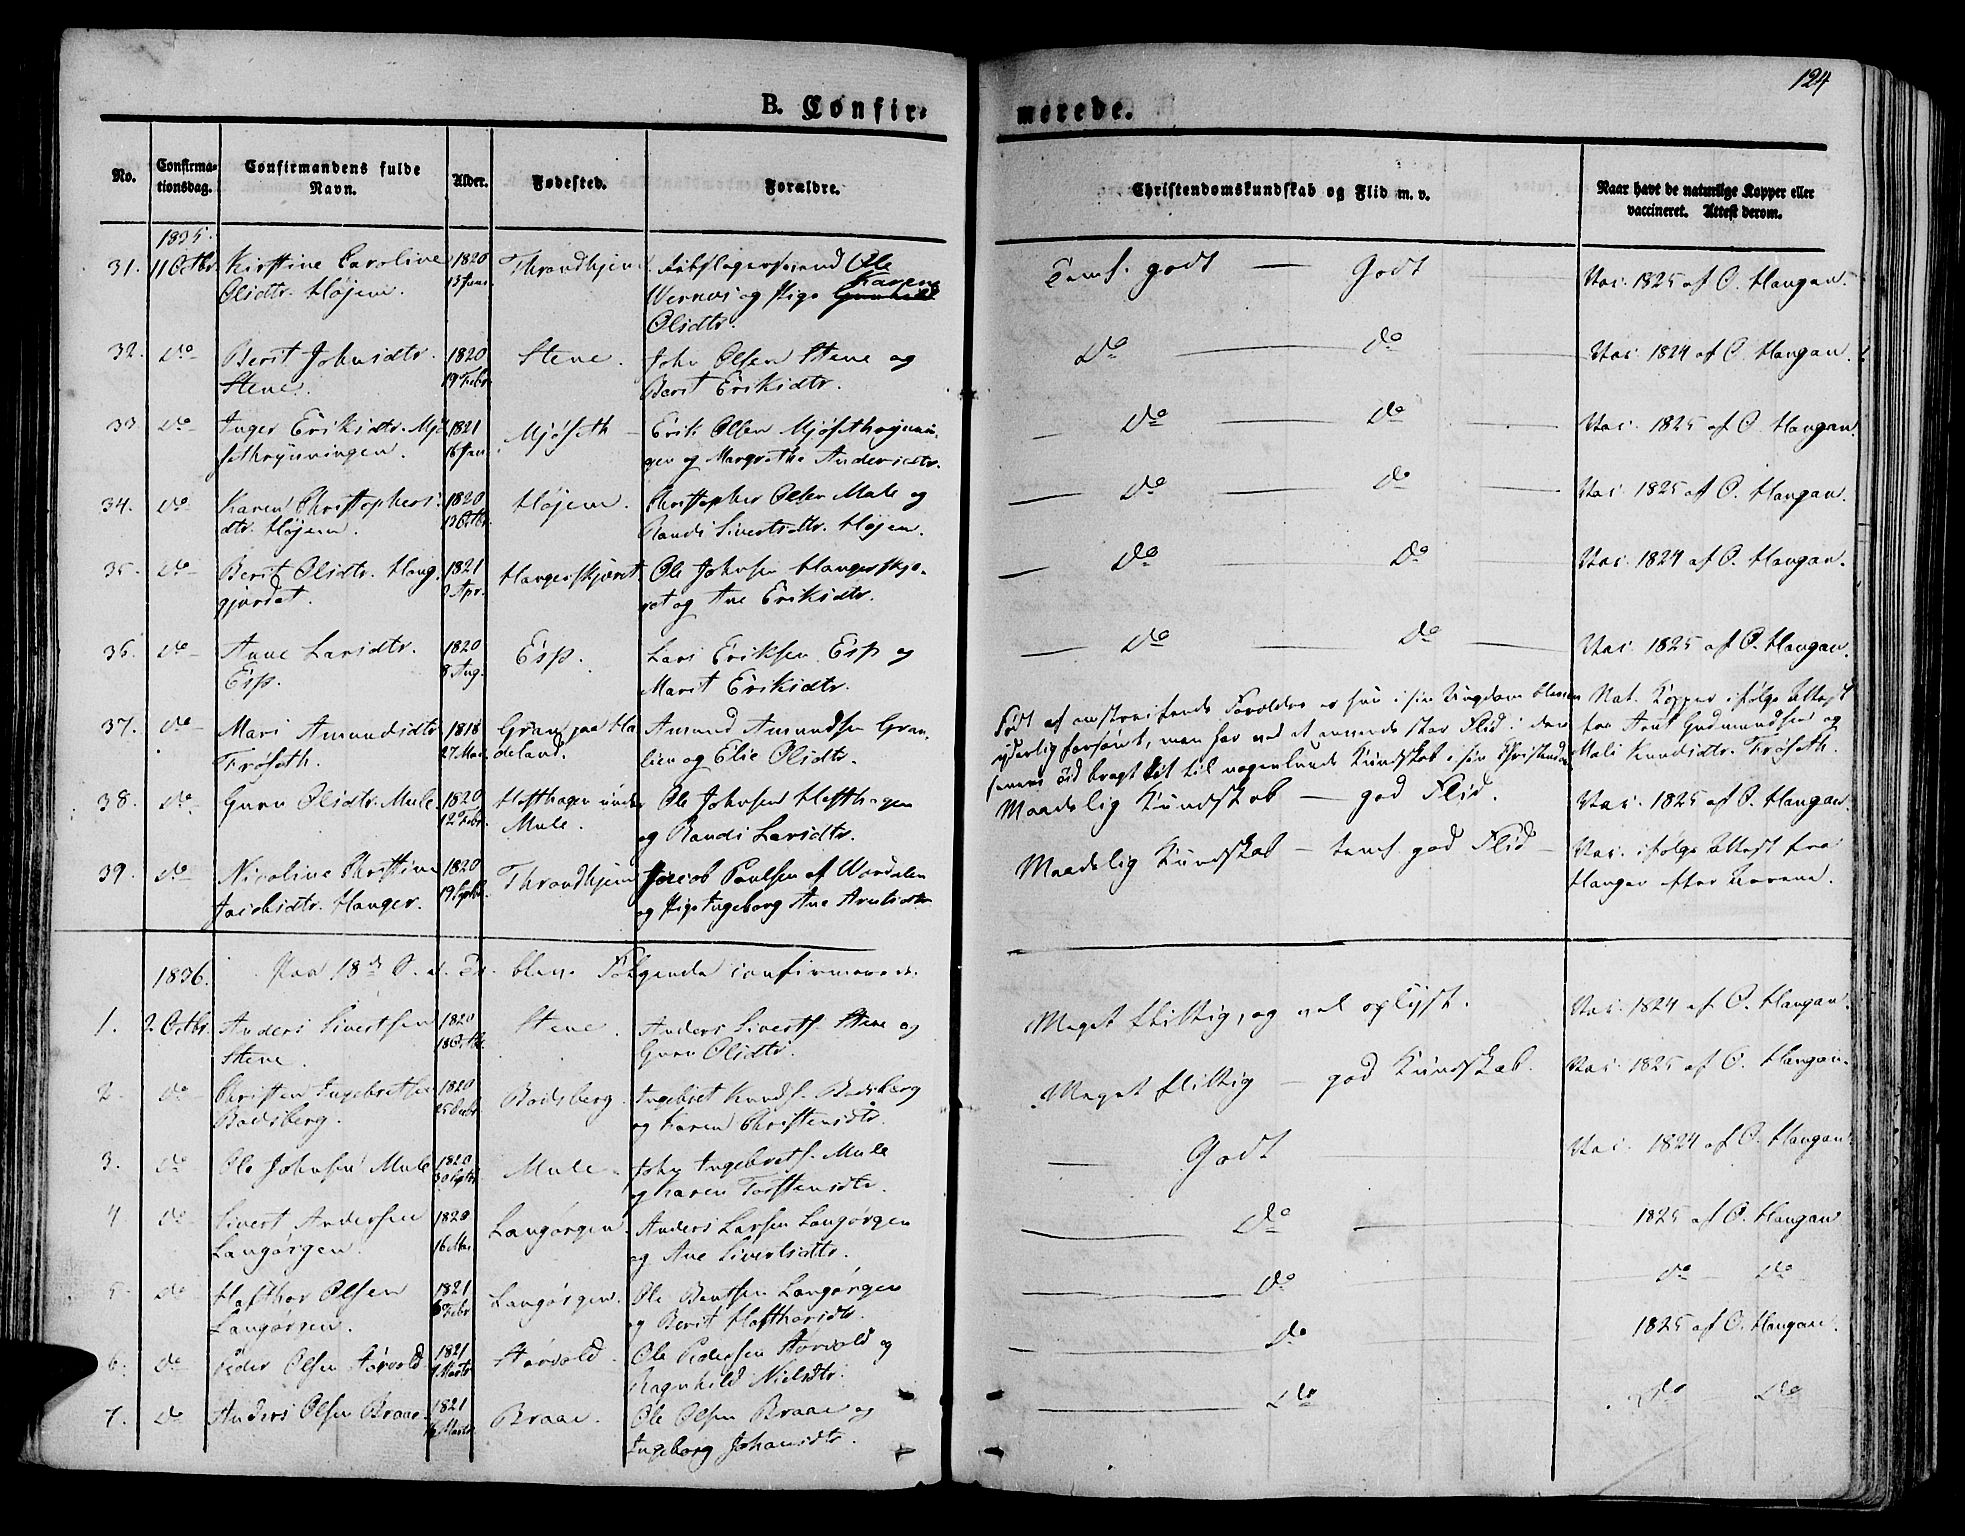 124
B. Confir-
merede.
No.
Confirma-
tionsdag.
Confirmandens fulde
Navn.
Alder.
Fødested.
Forældre.
Christendomskundskab og Flid m. v.
Naar havt de naturlige Kopper eller
vaccineret. Attest derom.
1835.
31. 11 Octbr. Kirstine Caroline 1820 Throndhjem Ole
Olidtr. Højem. 13 Karen
Wernes og Pige
Olidtr.
Temf. godt — Godt Vac. 1825 af O. Haugan.
32. do Berit Johnsdtr. 1820 Stene. John Olsen Stene og
Stene. 19 Febr. Berit Eriksdtr.
do do Vac. 1824 af O. Haugan.
33. do Inger Eriksdtr. Mjø- 1821 Mjøseth Erik Olsen Mjøsethrynnin-
sethrynningen. 16 Jan. gen og Margrethe Andersdtr.
do do Vac. 1825 af O. Haugan.
34. do Karen Christophers- 1820 Højem. Christopher Olsen Mule og
dtr. Højem. 13 Octbr. Randi Sivertsdtr. Højem.
do do Vac. 1825 af O. Haugan.
35. do Berit Olidtr. Haug- 1821 Haugerskjæret Ole Johnsen Haugerskjæ-
gjerdet. 2 Apr. ret og Ane Eriksdtr.
do do Vac. 1824 af O. Haugan.
36. do Anne Larsdtr. 1820 Esp. Lars Eriksen Esp og
Esp. 8 Aug. Marit Eriksdtr.
do do Vac. 1825 af O. Haugan.
37. do Mari Amundsdtr. 1818 Gran paa Ha- Amund Amundsen Gran-
Frøseth. 27 Mai. deland. lien og Elie Olidtr.
Født af omstreifende Forældre er hun i sin Ungdom bleven
yderlig forsømt, men har ved at anvende stor Flid i den
senere Tid bragt det til nogenlunde Kundskab i sin Christendom
Nat. Kopper ifølge Attest
fra Arnt Gudmundsen og
Mali Knudsdtr. Frøseth.
38. do Guru Olidtr. Mule. 1820 Hofthagen under Ole Johnsen Hofthagen
12 Febr. Mule. og Randi Larsdtr.
Maadelig Kundskab — god Flid. Vac. 1825 af O. Haugan.
39. do Nicoline Christine 1820 Throndhjem Jacob Paulsen af Værdalen
Jacobsdtr. Hauger. 19 Septbr. og Pige Ingeborg Ane Arntsdtr.
Maadelig Kundskab — temf. god Flid — Vac. ifølge Attest fra
Hauger
1836. Paa 18de S. e. Tr. bleve Følgende confirmerede.
1. 2 Octbr. Anders Sivertsen 1820 Stene. Anders Siverts. Stene og
Stene. 18 Octbr. Guru Olidtr.
Meget flittig, og vel oplyst. Vac. 1824 af O. Haugan.
2. do Christen Ingebretsen 1820 Bodsberg. Ingebret Knuds. Bodsberg
Bodsberg. 25 Decbr. og Karen Christensdtr.
Meget flittig — god Kundskab. Vac. 1825 af O. Haugan.
3. do Ole Johnsen Mule 1820 Mule. John Ingebrets. Mule
30 Septbr. og Karen Torstensdtr.
Godt Vac. 1824 af O. Haugan.
4 do Sivert Andersen 1820 Langørgen. Anders Larsen Langørgen
Langørgen. 16 Mai. og Ane Sivertsdtr.
do 1825 af O. Haugan
5. do Hafthor Olsen 1821 Langørgen. Ole Bentsen Langørgen
Langørgen. 6 Febr. og Berit Hafthorsdtr.
do do do
6. do Peder Olsen Størvold 1821 Størvold. Ole Pedersen Størvold og
Marts Ragnhild Nielsdtr.
do 1825 af O. Haugan.
7. do Anders Olsen Braae. 1821 Braae. Ole Olsen Braae og
Marts Ingeborg Johansdtr.
do do do